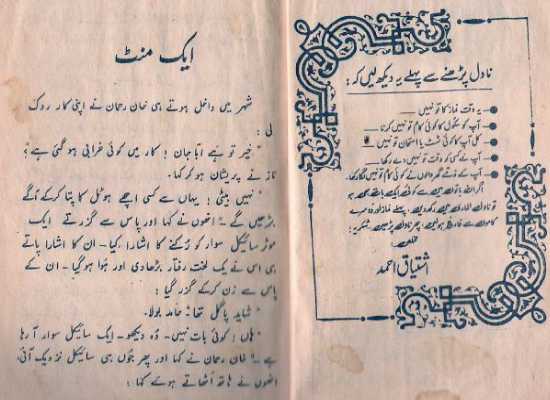 ناول پڑھنے سے پہلے یہ دیکھ لیں کہ:
یہ وقت نماز کا تو نہیں
آپ کو سکول کا کوئی کام تو نہیں کرنا
کل آپ کا کوئی ٹسٹ یا امتحان تو نہیں
آپ نے کسی کو وقت تو نہیں دے رکھا
آپ کے ذمے گھر والوں نے کوئی کام تو نہیں لگا رکھا
پہلے نماز اور دوسرے
کاموں سے فارغ ہو لیں، پھر ناول پڑھیں، شکریہ
اشتیاق احمد
ایک منٹ
شہر میں داخل ہوتے ہی خان رحمان نے اپنی کار روک
لی:
"خیر تو ہے ابا جان! کار میں کوئی خرابی ہو گئی ہے؟"
ناز نے پریشان ہو کر کہا۔
"نہیں بیٹی! یہاں سے کسی اچھے ہوٹل کا پتا کر کے آگے
بڑھیں گے۔" انھوں نے کہا اور پاس سے گزرتے ایک
موٹر سائیکل سوار کو رُکنے کا اشارہ کیا۔ ان کا اشارا پاتے
ہی اس نے یک لخت رفتار بڑھا دی اور ہوا ہو گیا۔ ان کے
پاس سے زن کر کے گزر گیا:
"شاید پاگل تھا۔" حامد بولا۔
"ہاں! کوئی بات نہیں۔ وُہ دیکھو۔ ایک سائیکل سوار آ رہا
ہے۔" خان رحمان نے کہا اور پھر جُوں ہی سائیکل نزدیک آئی،
انھوں نے ہاتھ اُٹھاتے ہوئے کہا: